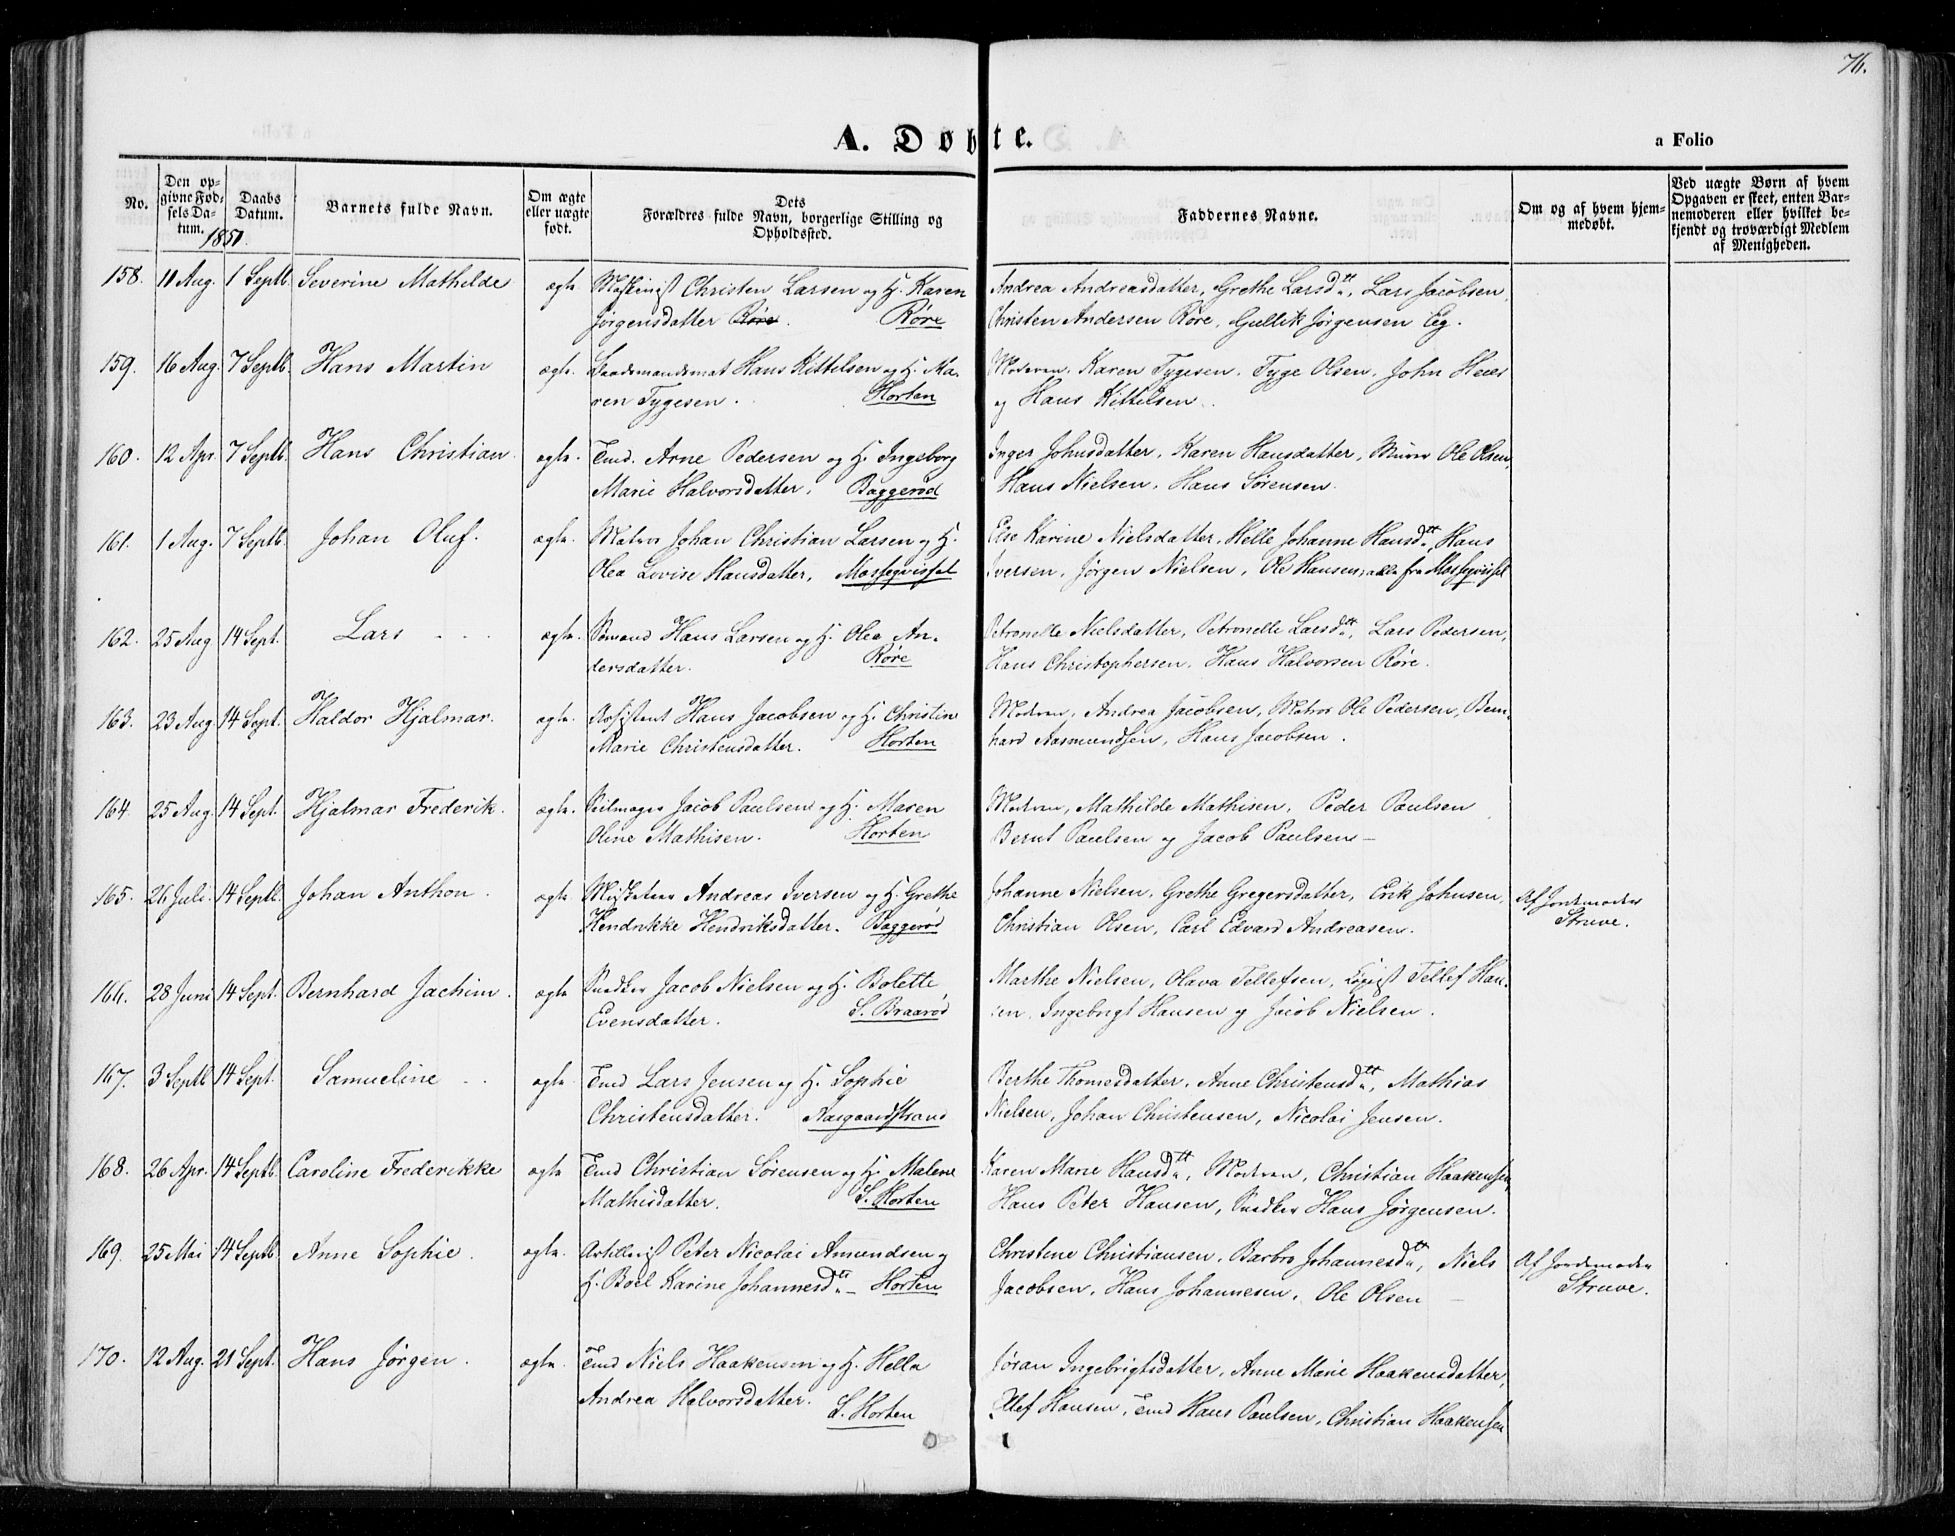 76.
A. Døbte.
a Folio
No.
Den op-
givne Fød-
sels Da-
tum.
Daabs
Datum.
Barnets fulde Navn.
Om ægte
eller uægte
født.
Dets
Forældres fulde Navn, borgerlige Stilling og
Opholdssted.
Faddernes Navne.
Om og af hvem hjem-
medøbt.
Ved uægte Børn af hvem
Opgaven er skeet, enten Bar-
nemoderen eller hvilket be-
kjendt og troværdigt Medlem
af Menigheden.
1851.
158. 11 Aug. 1 Septb. Severine Mathilde ægte Maskinist Christen Larsen og H. Karen Andrea Andreasdatter, Grethe Larsdtt., Lars Jacobsen,
Jørgensdatter Røre. Røre Christen Andersen Røre, Gullik Jørgensen Eg.
159. 16 Aug. 7 Septb. Hans Martin ægte. Baadsmandsmat Hans Kittelsen og H. Ma- Moderen, Karen Tygesen, Tyge Olsen, John
ren Tygesen. Horten og Hans Kittelsen.
160. 12 Apr. 7 Septb. Hans Christian ægte. Tmd. Arne Pedersen og H. Ingeborg Inger Johnsdatter, Karen Hansdatter, Murer Ole Olsen,
Marie Halvorsdatter. Baggerød Hans Nielsen, Hans Sørensen.
161. 1 Aug. 7 Septb. Johan Oluf. ægte. Matros Johan Christian Larsen og H. Else Karine Nielsdatter, Helle Johanne Hansdtt., Hans
Olea Lovise Hansdatter. Masseqvissel Iversen, Jørgen Nielsen, Ole Hansen, alle fra Massqvissel
162. 25 Aug 14 Sept. Lars ægte. Sømand Hans Larsen og H. Olea An- Petronelle Nielsdatter, Petronelle Larsdtt., Lars Pedersen,
dersdatter. Røre Hans Christophersen, Hans Halvorsen Røre.
163. 23 Aug 14 Sept. Haldor Hjalmar. ægte. Assistent Hans Jacobsen og H. Christine Moderen, Andrea Jacobsen, Matros Ole Pedersen, Bern-
Marie Christensdatter. Horten hard Aasmundsen, Hans Jacobsen.
164. 25 Aug. 14 Sept. Hjalmar Frederik. ægte. Seilmager Jacob Paulsen og H. Maren Moderen, Mathilde Mathisen, Peder Paulsen
Oline Mathisen. Horten Bernt Paulsen og Jacob Paulsen –
165. 26 Juli. 14 Septb. Johan Anthon. ægte Andreas Iversen og H. Grethe Johanne Nielsen, Grethe Gregersdatter, Erik Johnsen, Af Jordemoder
Hendrikke Hendriksdatter. Baggerød Christian Olsen, Carl Edvard Andreasen. Struve.
166. 28 Juni 14 Sept. Bernhard Jachim. ægte Snedker Jacob Nielsen og H. Bolette Marthe Nielsen, Olava Tellefsen, Tellef Han-
Evensdatter. S. Braarød sen, Ingebrigt Hansen og Jacob Nielsen.
167. 3 Septb 14 Sept. Samueline ægte. Tmd Lars Jensen og H. Sophie Berthe Thomesdatter, Anne Christensdtt., Mathias
Christensdatter. Aasgaardstrand Nielsen, Johan Christensen, Nicolai Jensen.
168. 26 Apr. 14 Septb. Caroline Frederikke ægte Tmd Christian Sørensen og H. Malene Karen Marie Hansdtt., Moderen, Christian Haakensen,
Mathisdatter. S. Horten Hans Peter Hansen, Snedker Hans Jørgensen.
169. 25 Mai 14 Septb. Anne Sophie. ægte. Artillerist Peter Nicolai Amundsen og Christene Christiansen, Barbro Johannesdtt., Niels Af Jordemoder
H. Boel Karine Johannesdtt. – Horten Jacobsen, Hans Johannesen, Ole Olsen Struve.
170. 12 Aug. 21 Sept. Hans Jørgen. ægte. Tmd Niels Haakensen og H. Hella Jøran Ingebrigtsdatter, Anne Marie Haakensdatter,
Andrea Halvorsdatter. S. Horten Hansen, Tmd Hans Paulsen, Christian Haakensen